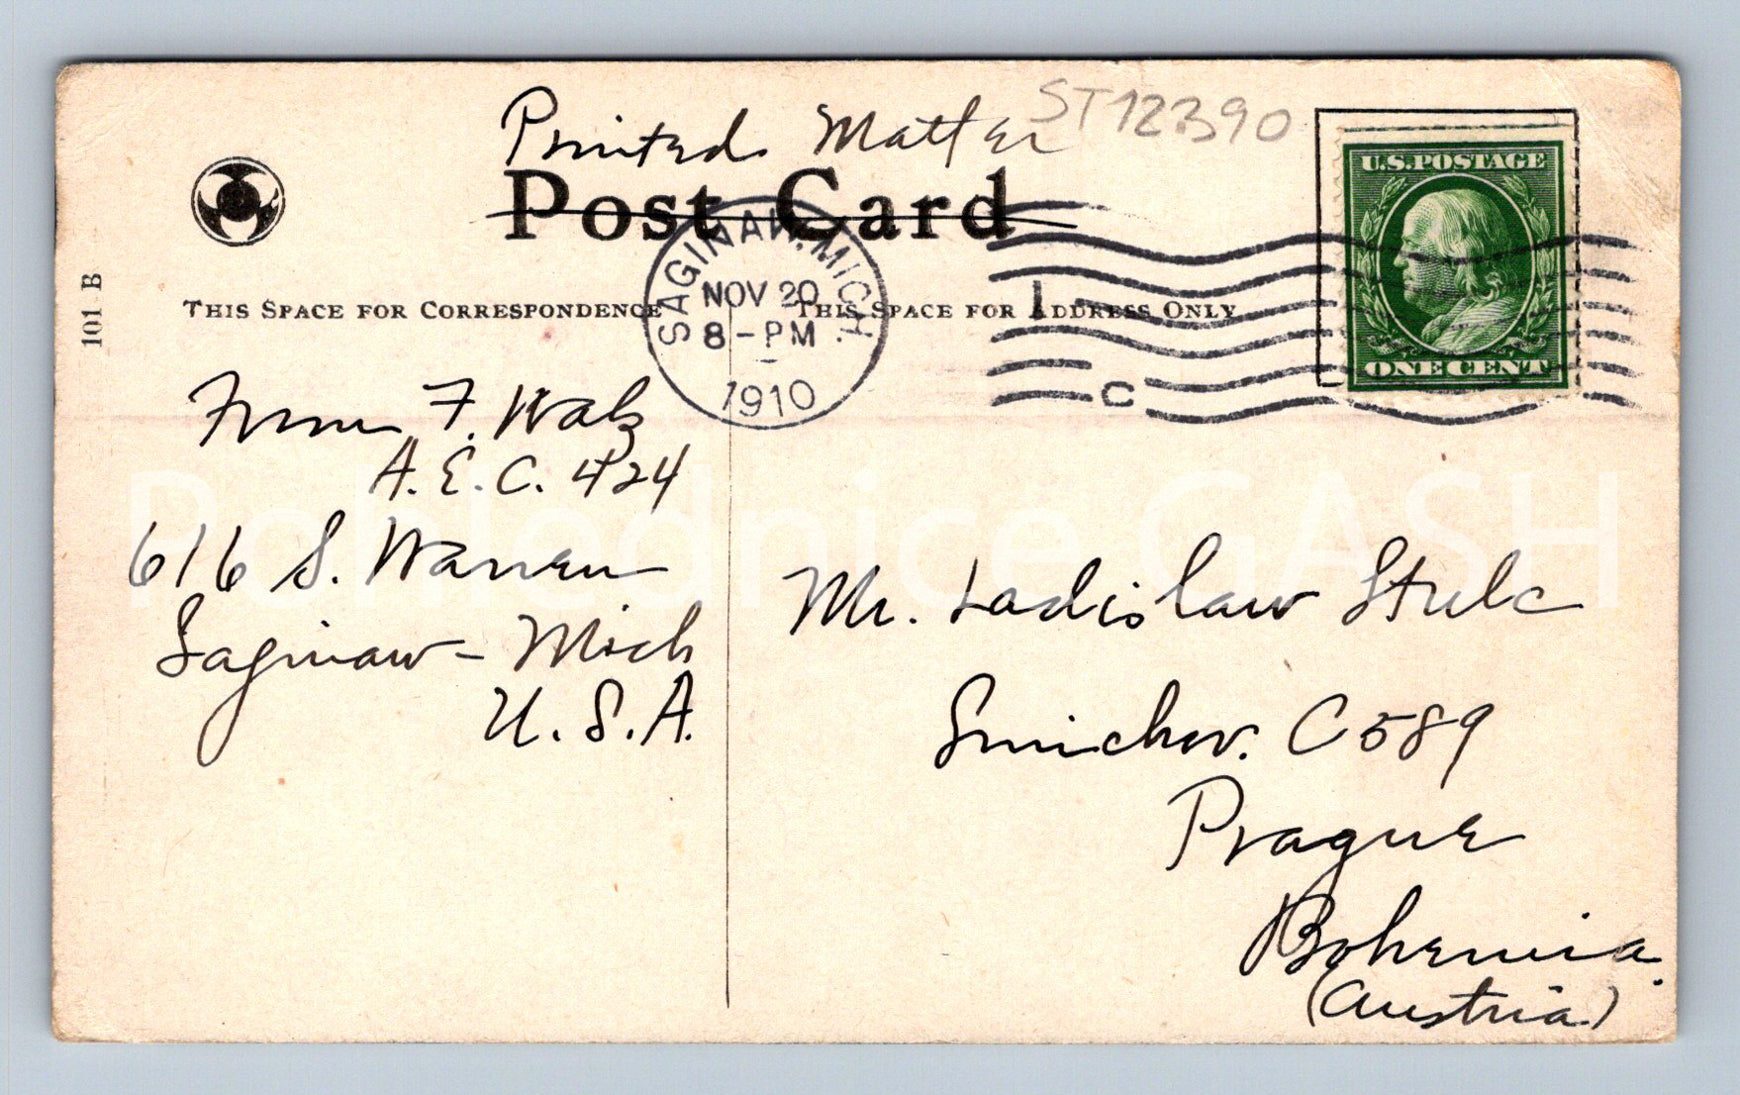 Printed Matter
ST12390
Post Card
U.S. POSTAGE
ONE CENT
SAGINAW, MICH.
NOV 20
8-PM
1910
1
C
101 B
THIS SPACE FOR CORRESPONDENCE
THIS SPACE FOR ADDRESS ONLY
From F. Walz
A.E.C. 424
616 S. Warren
Saginaw - Mich
U.S.A.
Mr. Ladislaw Stulc
Smichov. C 589
Prague
Bohemia.
(Austria.)
Pohlednice GASH